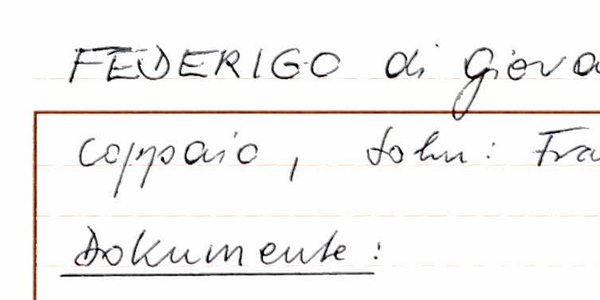 FEDERIGO di Giova
Coppaio, Sohn: Fra
Dokumente: